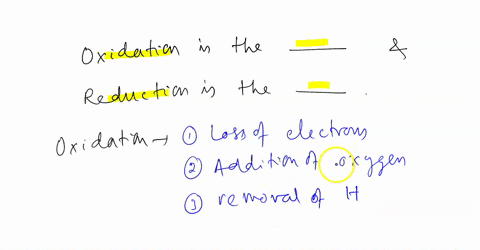 Oxidation is the ____ &
Reduction is the ____ .
Oxidation → ① Loss of electrons
② Addition of oxygen
③ removal of H